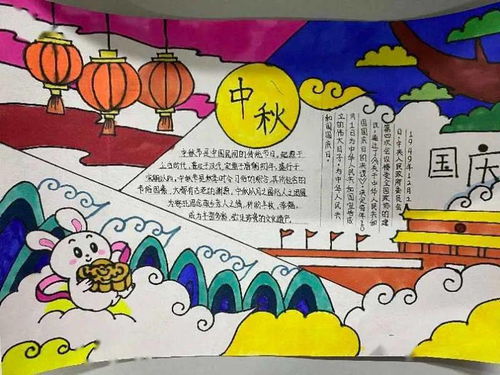 中秋
中秋节是中国民间的传统节日，起源于
上古时代，普及于汉代，定型于唐朝初年，盛行于
宋朝以后，中秋节是秋季时令习俗的综合，其所包含的
节俗因素，大都有古老的渊源。中秋以月之圆兆人之团圆
为寄托思念故乡思念亲人之情，祈盼丰收、幸福，
成为丰富多彩、弥足珍贵的文化遗产。
国庆
1949年12月2
日，中央人民政府委员会
第四次会议接受全国政协的建
议，通过了《关于中华人民共和
国国庆日的决议》，决定每年10
月1日为中华人民共和国宣告成
立的伟大日子，为中华人民共
和国国庆日。